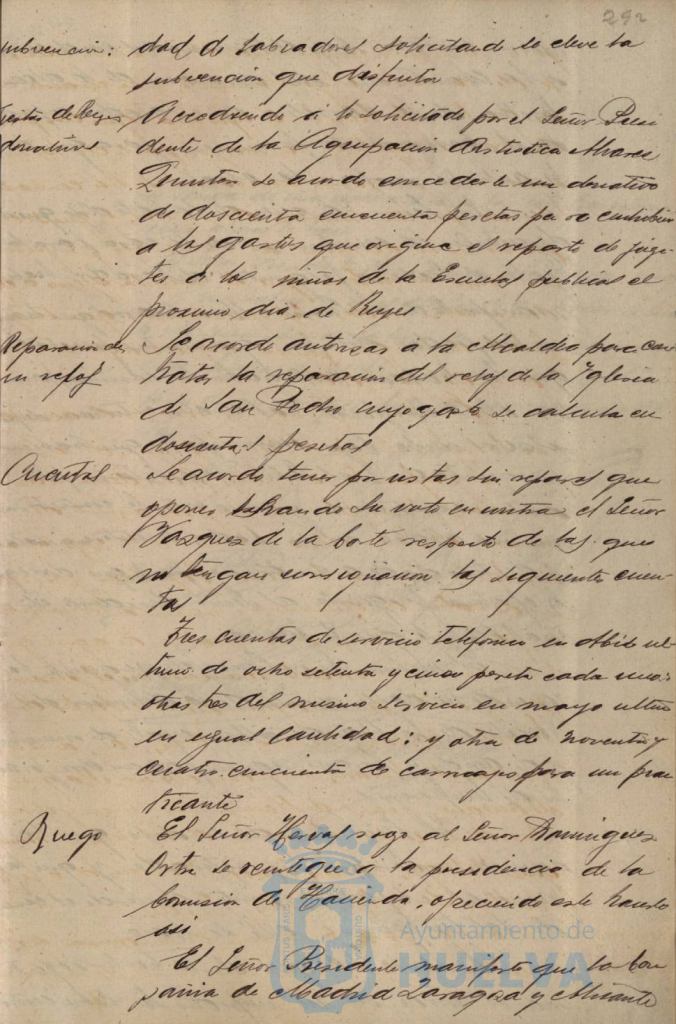 292
subvencion: dad de labradores solicitando se eleve la
subvención que disfruta
Fiestas de Reyes Accediendo a lo solicitado por el Señor Presi
donativo dente de la Agrupación Artistica Alvarez
Quintero se acordo concederle un donativo
de doscienta cincuenta pesetas para contribuir
a los gastos que origine el reparto de jugue
tes a los niños de la Escuelas publicas el
proximo dia de Reyes
Reparacion de Se acordo autorizar a la Alcaldia para con
un reloj tratar la reparacion del reloj de la Yglesia
de San Pedro cuyo gasto se calcula en
doscientas pesetas
Cuentas Se acordo tener por vistas sin reparos que
oponer salvando su voto en contra el Señor
Vazquez de la Corte respecto de las que
no tengan consignacion las siguientes cuen
tas
Tres cuentas de servicio telefonico en Abril ul
timo de ocho setenta y cinco peseta cada una:
otras tres del mismo servicio en mayo ultimo
en igual cantidad: y otra de noventa y
cuatro cincuenta de carruajes para un prac
ticante
Ruego El Señor Hervas rogo al Señor Dominguez
Ortiz se reintegre a la presidencia de la
Comision de Hacienda, ofreciendo este hacerlo
asi
El Señor Presidente manifesto que la Com
pañia de Madrid Zaragoza y Alicante
Ayuntamiento de
HUELVA